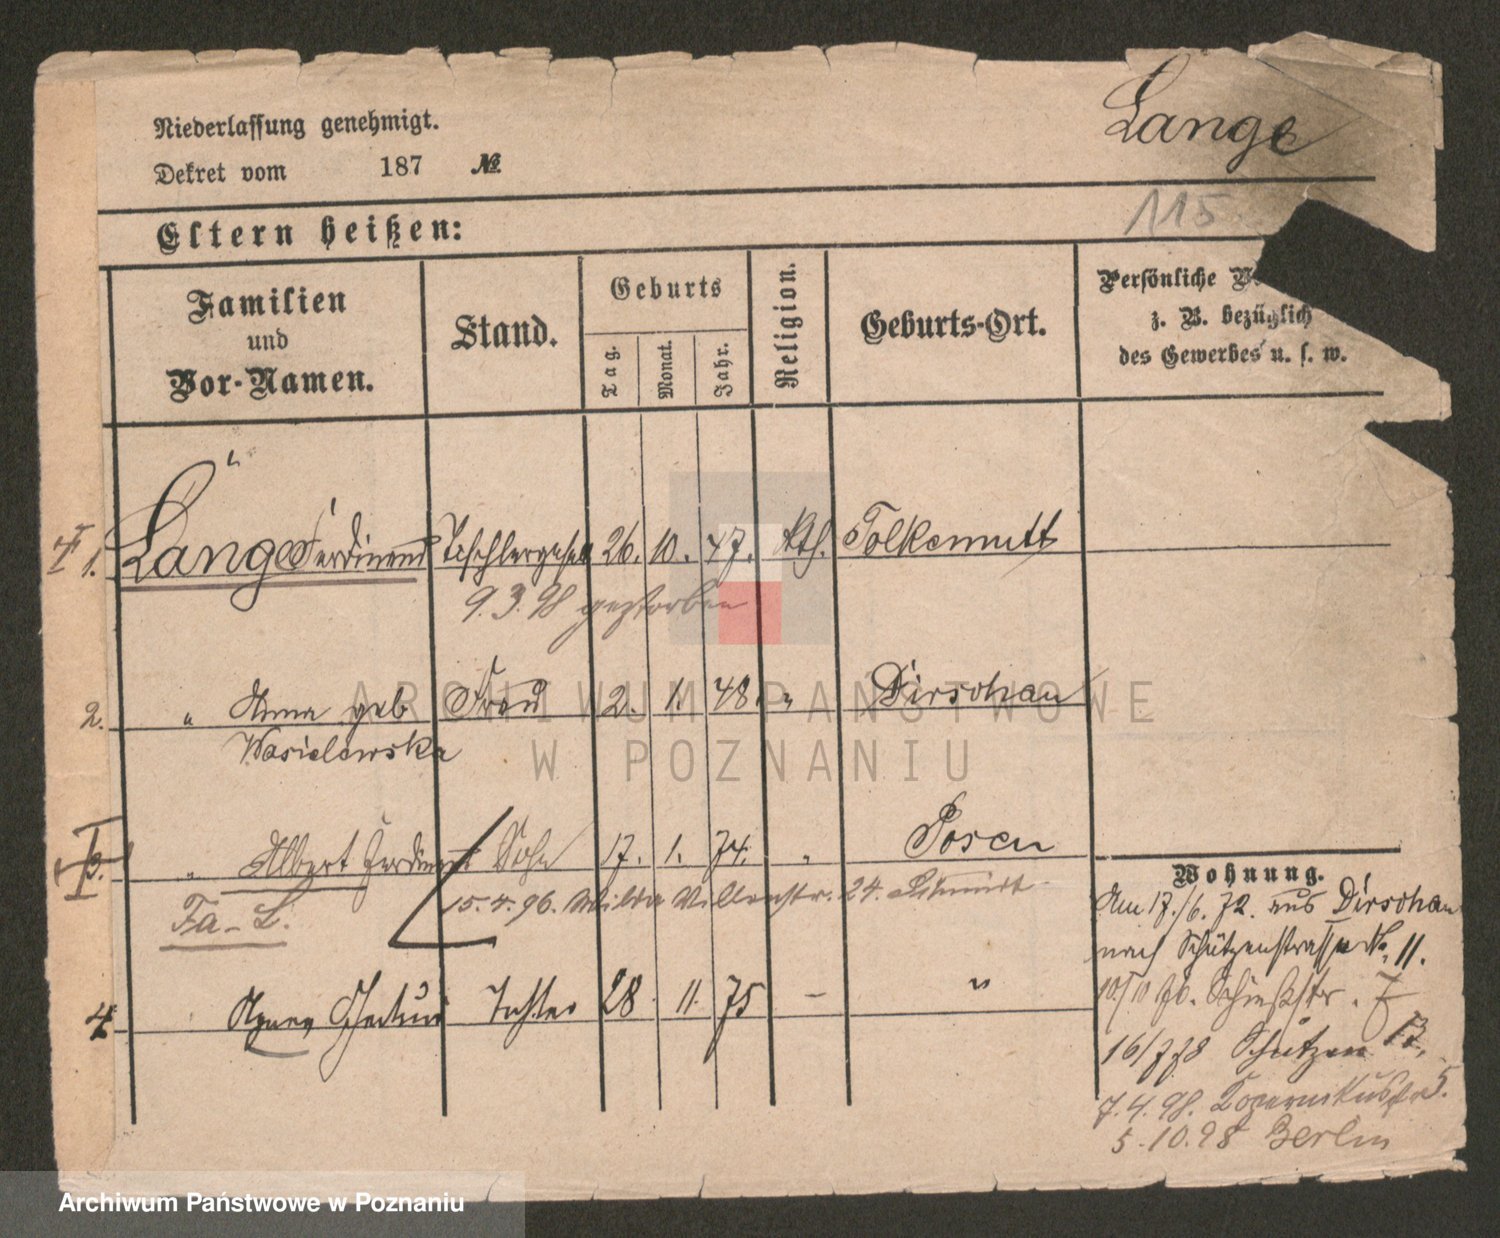 Lange
Niederlassung genehmigt.
Dekret vom 187 №
115.
Eltern heißen:
Familien und Vor-Namen.
Stand.
Geburts
Tag. Monat. Jahr.
Religion.
Geburts-Ort.
Persönliche
z. B. bezüglich
des Gewerbes u. s. w.
1. Lange Ferdinand Tischlergesell 26. 10. 47. Kth. Tolkemutt
9.3.98 gestorben
2. " Anna geb Frau 2. 1. 48. " Dirschau
Wasielewska
3. " Albert Ferdinand Sohn 17. 1. 74. " Posen
15.4.96. Wilda Villenstr. 24. Schmidt
Fa - L.
4. " Agnes Tochter 28 11. 75 – "
Wohnung.
Am 17./6. 72. aus Dirschau
nach Schützenstrasse No. 11.
10/10 76. Schießstr. 7
16/7 78 Schützen 13.
7.4.98. Kopernikusstr 5.
5.10.98 Berlin
ARCHIWUM PAŃSTWOWE
W POZNANIU
Archiwum Państwowe w Poznaniu